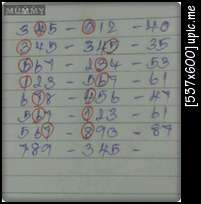 MUMMY
345 - 012 - 40
345 - 345 - 35
567 - 234 - 53
123 - 567 - 61
678 - 156 - 47
567 - 123 - 61
567 - 390 - 87
789 - 345 -
[537x600] upic.me